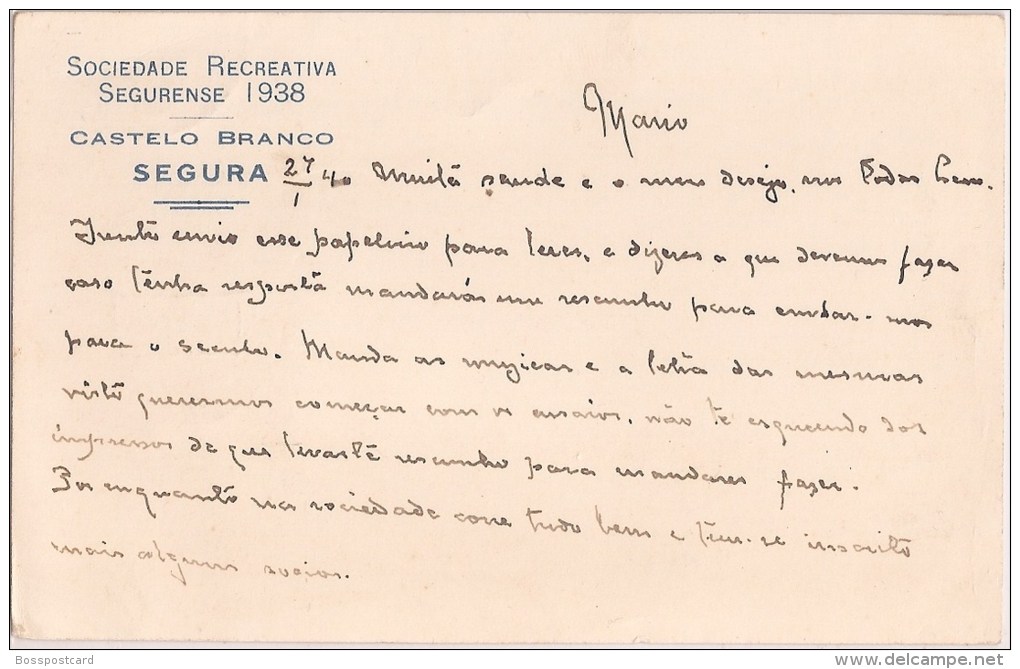 SOCIEDADE RECREATIVA
SEGURENSE 1938
CASTELO BRANCO
SEGURA 27/1/40
Mario
Muita saude e o meu desejo, nos todos bem.
Junto envio esse papelinho para leres, e dizeres a que devemos fazer
caso tenha resposta mandarás um rescunho para enviar-mos
para o seculo. Manda as muzicas e a letra das mesmas
visto querermos começar com os ensaios, não te esquecendo dos
impressos de que levaste rescunho para mandares fazer.
Por enquanto na sociedade corre tudo bem e tem-se inscrito
mais alguns socios.
Bosspostcard
www.delcampe.net